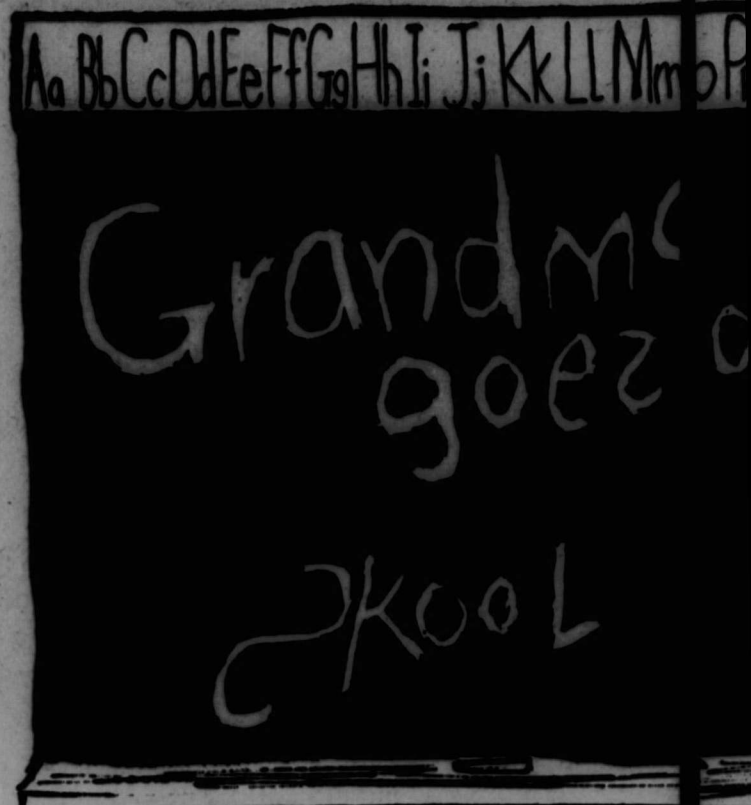 Aa Bb Cc Dd Ee Ff Gg Hh Ii Jj Kk Ll Mm
Grandm
goes
skool